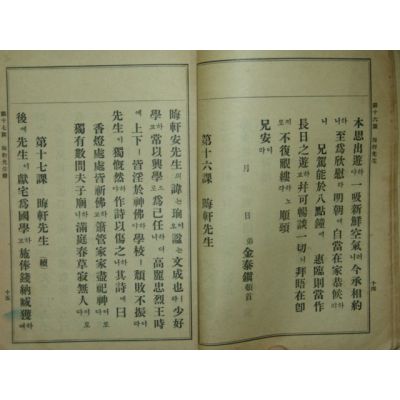 本思出遊하야 一吸新鮮空氣러니 今承相約하니
至爲欣慰라 明朝에 自當在家恭候하리니
兄駕能於八點鐘에 惠臨則當作
長日之遊하고 幷可暢談一切니 拜晤在卽이라
不復覼縷하노니 順頌
兄安
月 日 弟 金泰鎭 頓首
第十六課 晦軒先生
晦軒安先生의 諱는 瑜요 謚는 文成也라 少好
學하고 常以興學으로 爲己任이러니 高麗忠烈王時
에 上下ㅣ 皆淫於神佛하야 學校ㅣ 頹敗不振이라
先生이 獨慨然하야 作詩以傷之하니 其詩에 曰
香燈處處皆祈佛하고 簫管家家盡祀神이라
獨有數間夫子廟하니 滿庭春草寂無人이라
第十七課 晦軒先生 續
後에 先生이 獻宅爲國學하고 施俸錢納臧獲하야